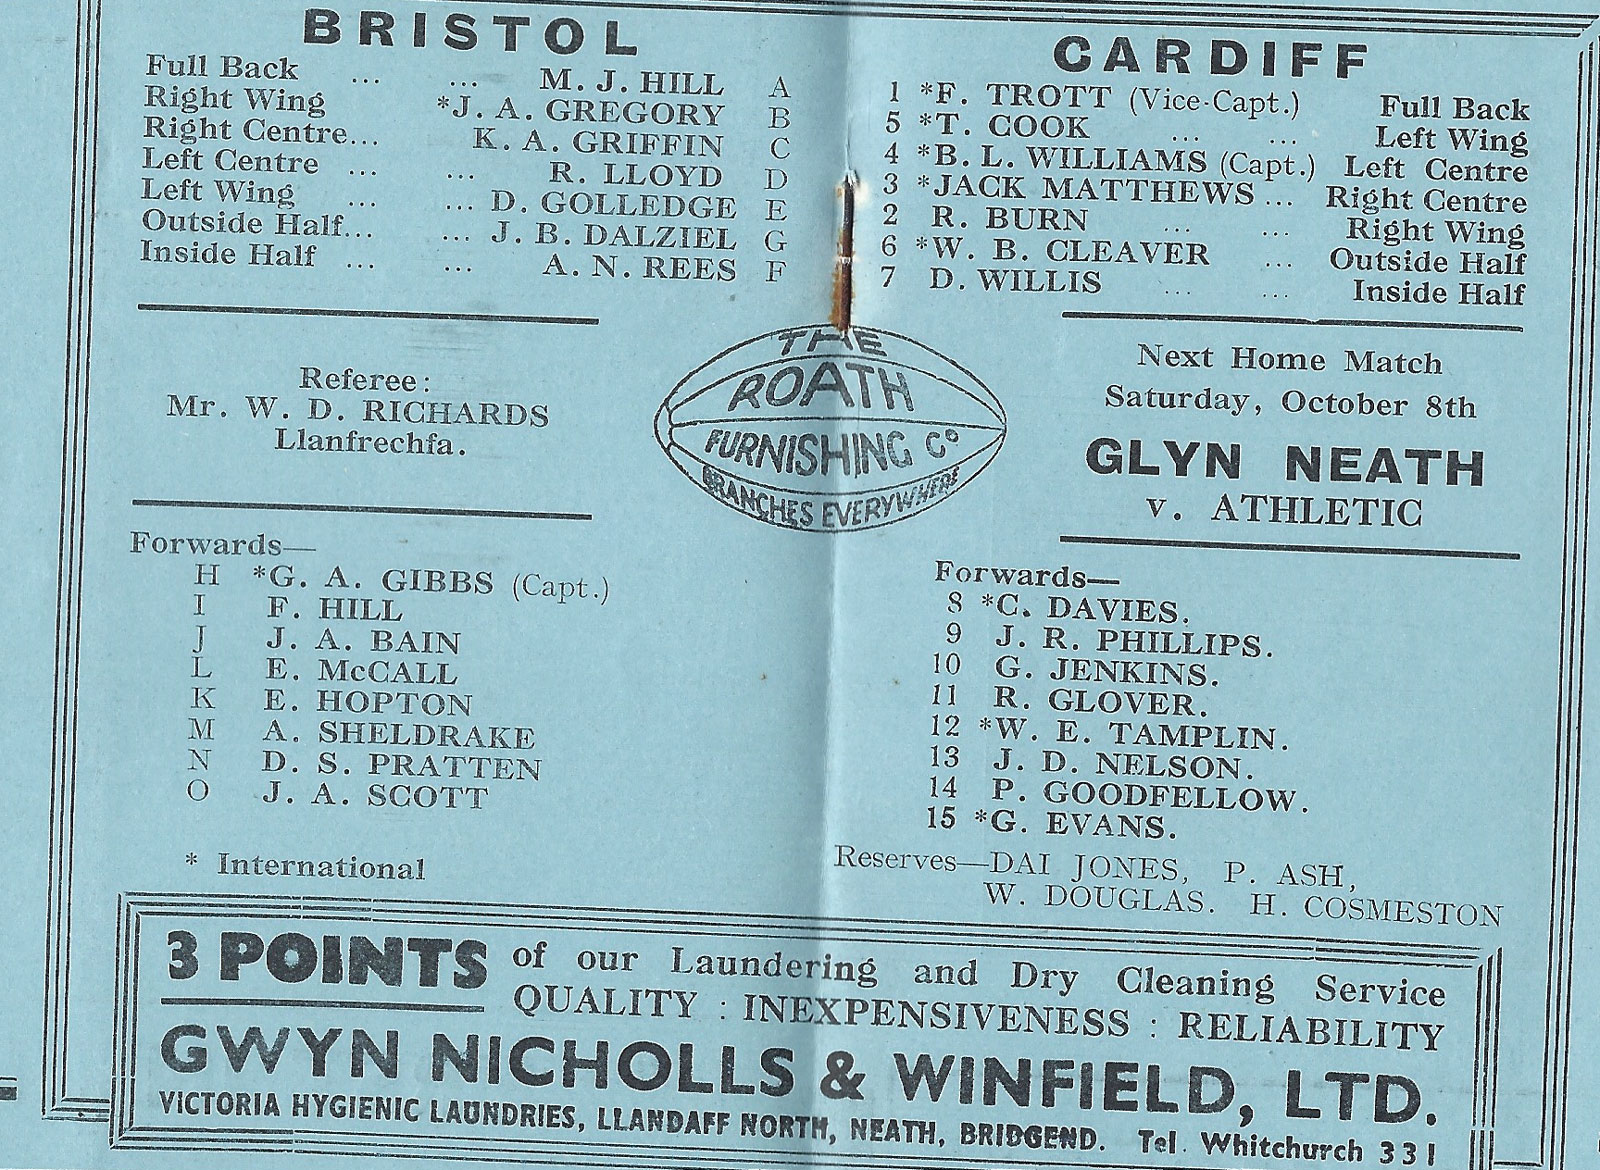 BRISTOL
Full Back ... ... M. J. HILL A
Right Wing *J. A. GREGORY B
Right Centre... K. A. GRIFFIN C
Left Centre ... ... R. LLOYD D
Left Wing ... ... D. GOLLEDGE E
Outside Half... ... J. B. DALZIEL G
Inside Half ... ... A. N. REES F
Referee:
Mr. W. D. RICHARDS
Llanfrechfa.
Forwards—
H *G. A. GIBBS (Capt.)
I F. HILL
J J. A. BAIN
L E. McCALL
K E. HOPTON
M A. SHELDRAKE
N D. S. PRATTEN
O J. A. SCOTT
* International
THE
ROATH
FURNISHING Co
BRANCHES EVERYWHERE
CARDIFF
1 *F. TROTT (Vice-Capt.) Full Back
5 *T. COOK ... ... Left Wing
4 *B. L. WILLIAMS (Capt.) Left Centre
3 *JACK MATTHEWS ... Right Centre
2 R. BURN ... ... Right Wing
6 *W. B. CLEAVER ... Outside Half
7 D. WILLIS ... ... Inside Half
Next Home Match
Saturday, October 8th
GLYN NEATH
v. ATHLETIC
Forwards—
8 *C. DAVIES.
9 J. R. PHILLIPS.
10 G. JENKINS.
11 R. GLOVER.
12 *W. E. TAMPLIN.
13 J. D. NELSON.
14 P. GOODFELLOW.
15 *G. EVANS.
Reserves—DAI JONES, P. ASH,
W. DOUGLAS. H. COSMESTON
3 POINTS of our Laundering and Dry Cleaning Service
QUALITY : INEXPENSIVENESS : RELIABILITY
GWYN NICHOLLS & WINFIELD, LTD.
VICTORIA HYGIENIC LAUNDRIES, LLANDAFF NORTH, NEATH, BRIDGEND. Tel. Whitchurch 331